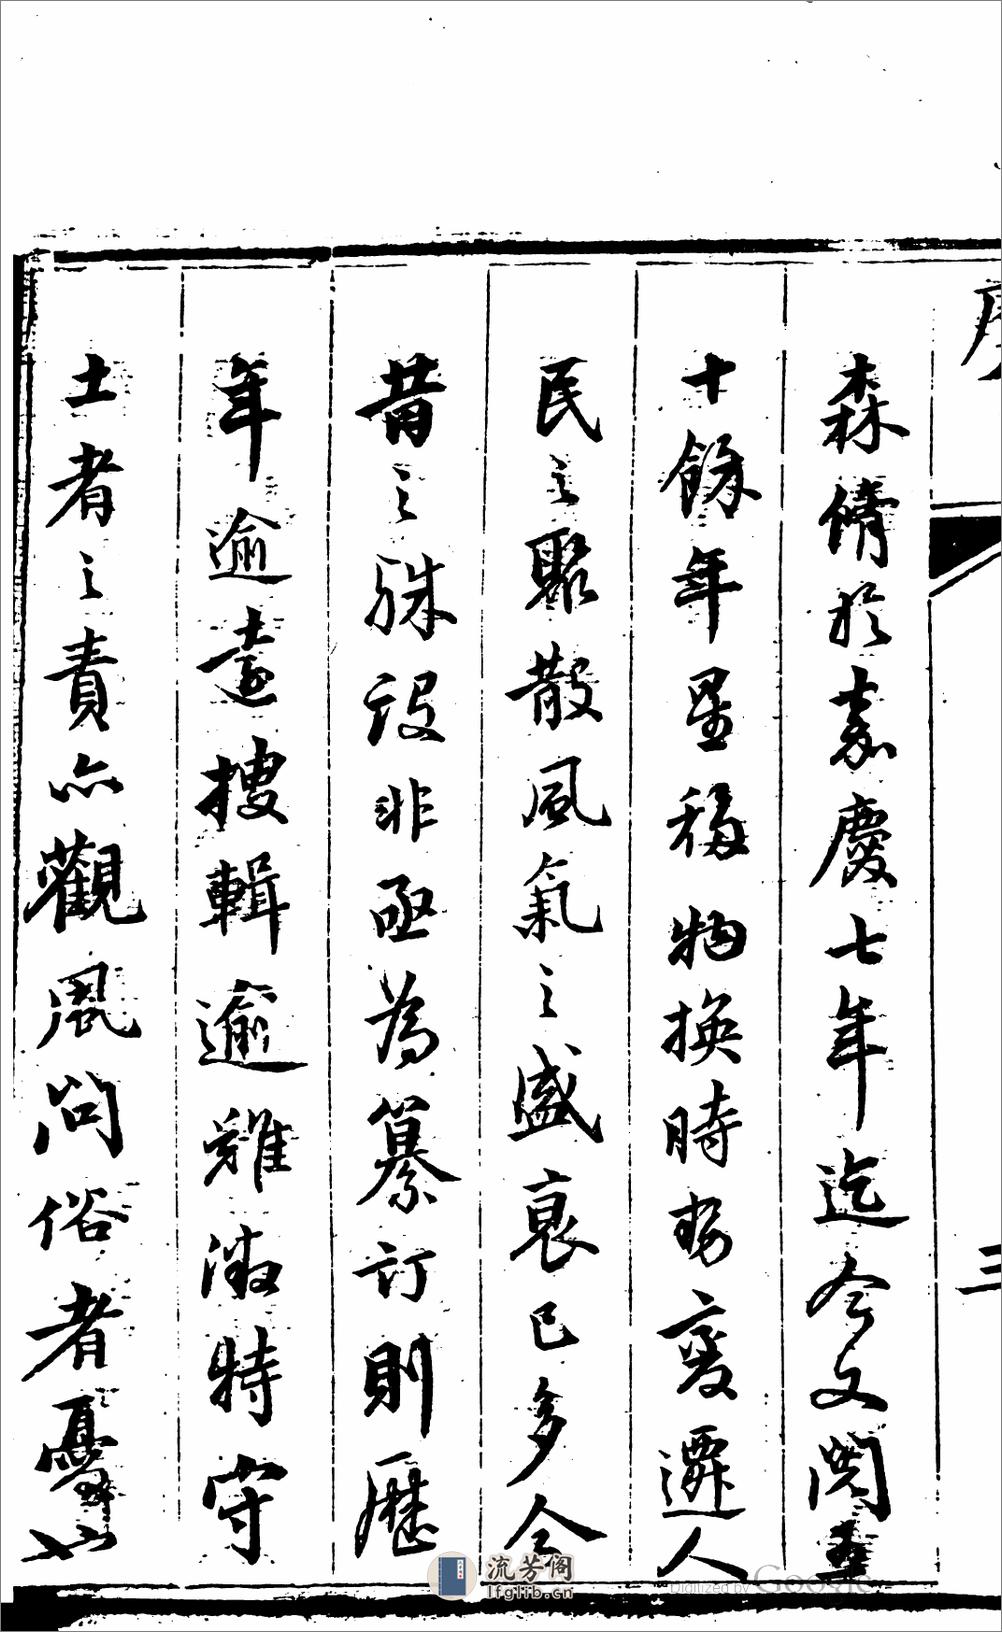 序
三
森脩於嘉慶七年迄今又閱
十餘年星移物換時勢變遷人
民之聚散風氣之盛衰已多今
昔之殊設非亟為纂訂則歷
年逾遠搜輯逾難滋特守
土者之責亦觀風問俗者憂
流芳阁
lfglib.cn
Digitized by Google